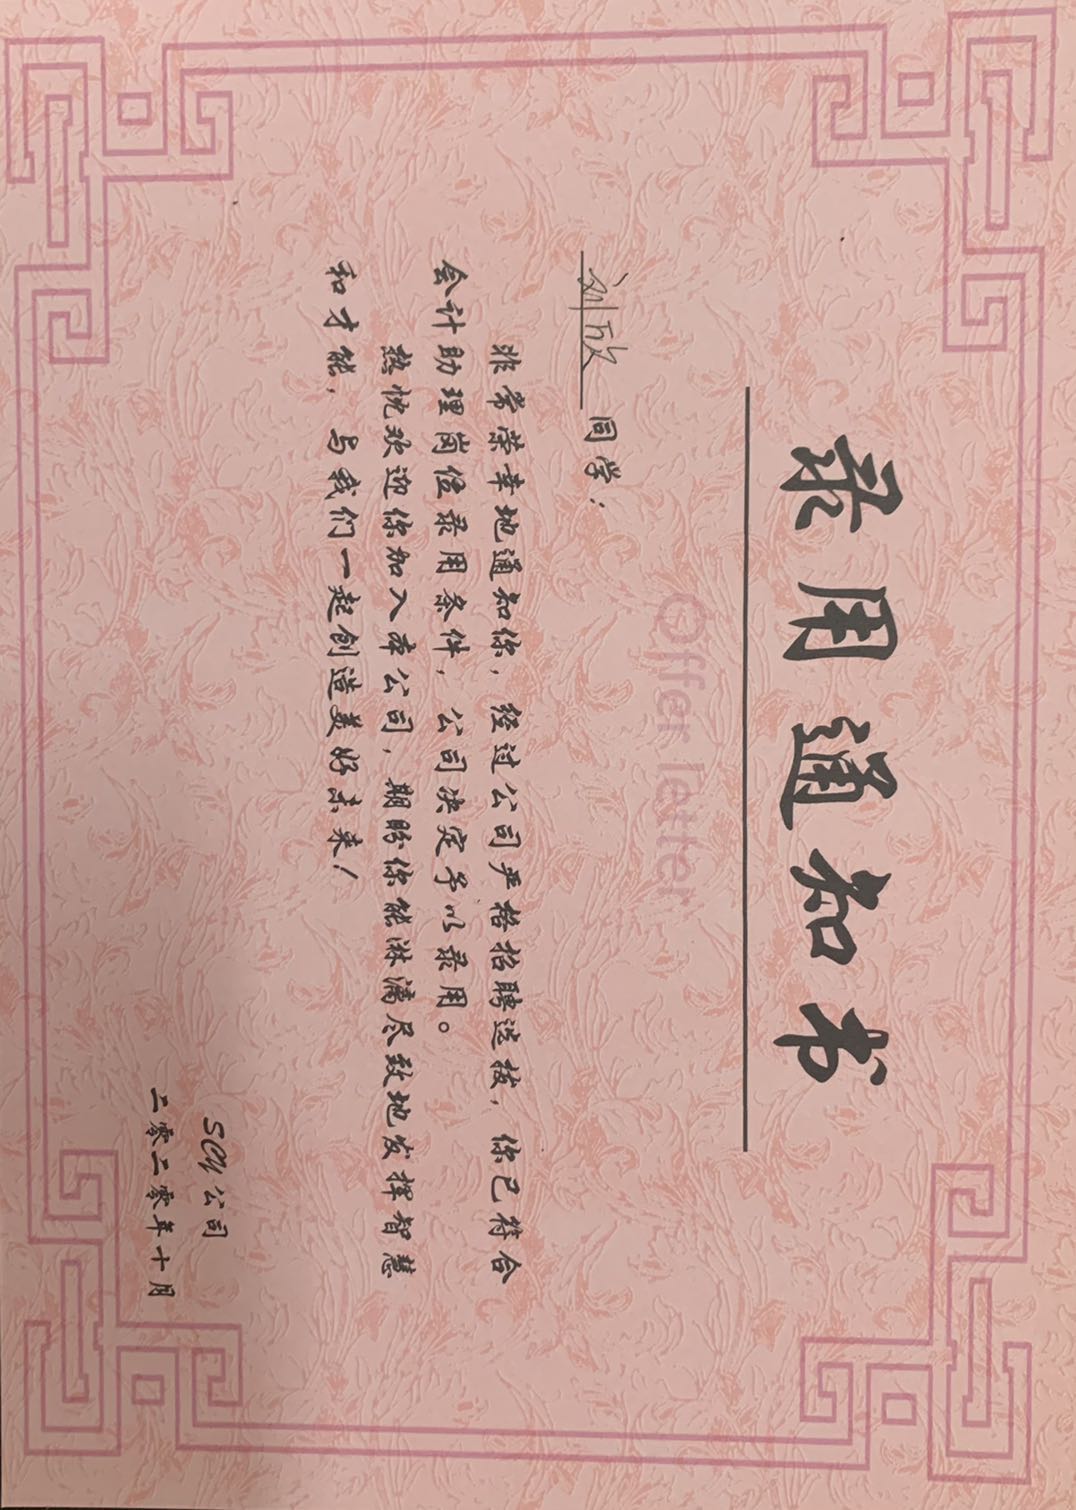 录用通知书
Offer letter
刘欣 同学：
非常荣幸地通知你，经过公司严格招聘选拔，你已符合
会计助理岗位录用条件，公司决定予以录用。
热忱欢迎你加入本公司，期盼你能淋漓尽致地发挥智慧
和才能，与我们一起创造美好未来！
SCY公司
二零二零年十月